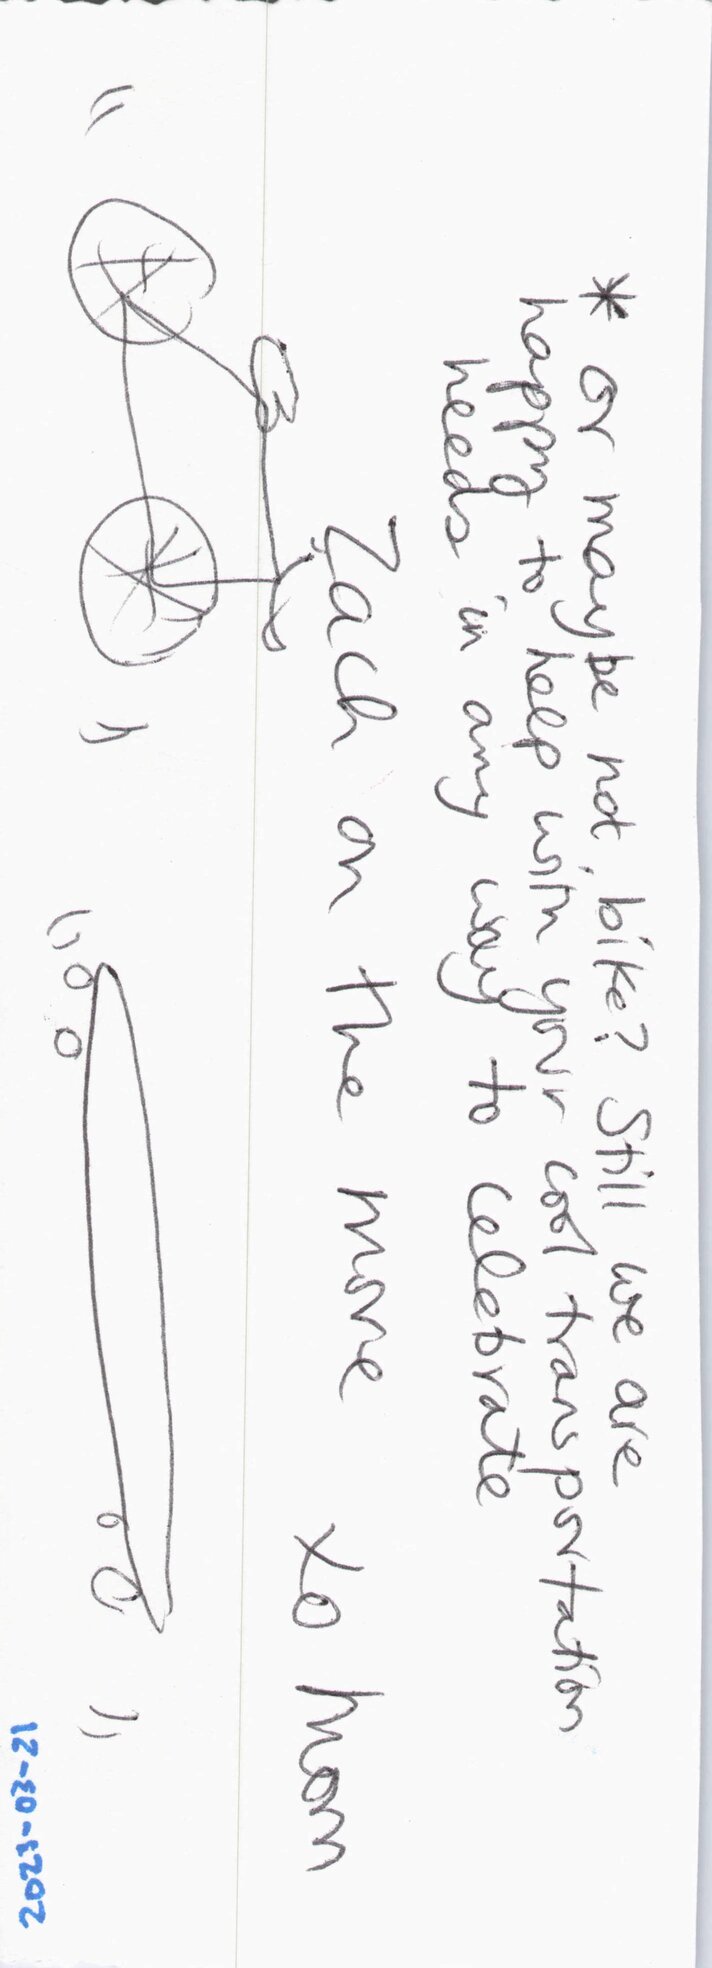 * or maybe not bike? Still we are
happy to help with your cool transportation
needs in any way to celebrate
Zach on the move xo Mom
2023-03-21